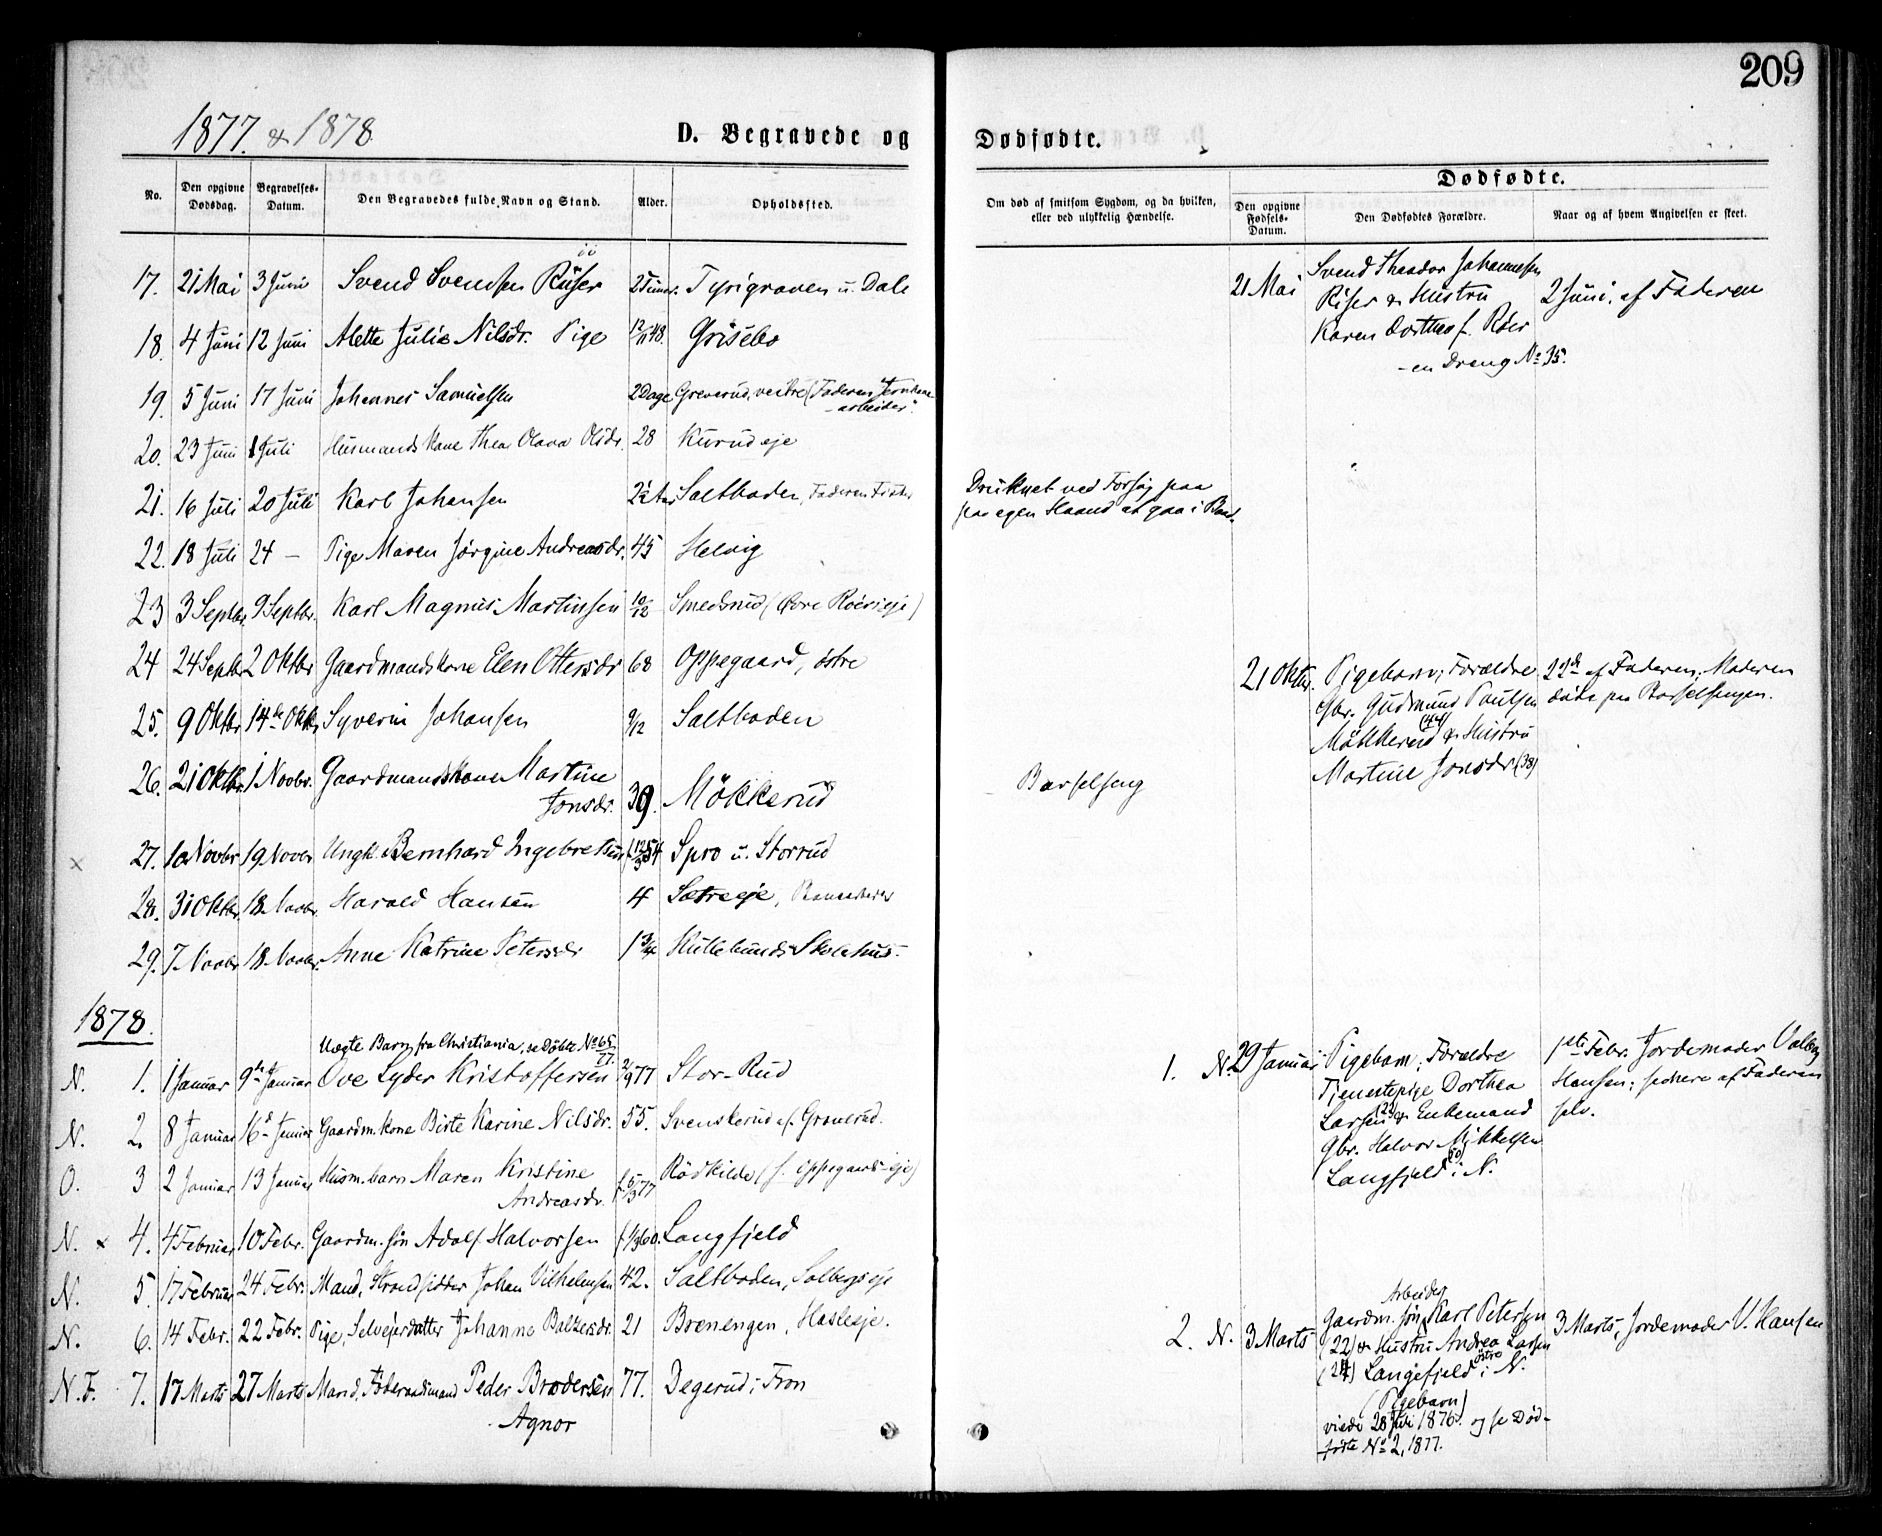 209
1877. & 1878
D. Begravede og Dødfødte.
No.
Den opgivne Dødsdag.
Begravelses-Datum.
Den Begravedes fulde Navn og Stand.
Alder.
Opholdssted.
Om død af smitsom Sygdom, og da hvilken, eller ved ulykkelig Hændelse.
Dødfødte.
Den opgivne Fødsels-Datum.
Den Dødfødtes Forældre.
Naar og af hvem Angivelsen er skeet.
17. 21 Mai 3 Juni Svend Svendsen Riiser 2 Timer. Tyrigraven u. Dale
21 Mai Svend Theodor Johannesen
Riser & Hustru 2 Juni, af Faderen
Karen Dorthea f. Röer
- en Dreng No 35.
18. 4 Juni 12 Juni Alette Julie Nilsdr. Pige 12/11 48. Grisebo
19. 5 Juni 17 Juni Johannes Samuelsen 2 Dage Greverud, vestre (Faderen Jernbane-
-arbeider".
20. 23 Juni 1 Juli Husmandskone Thea Olava Olsdr. 28 Kurud eje
21. 16 Juli 20 Juli Karl Johansen 2½ Aar Saltboden, Faderen Fisker
Druknet ved Forsøg paa
paa egen Haand at gaa i Baad.
22. 18 Juli 24 - Pige Maren Jörgine Andreasdr. 45 Helvig
23 3 Septbr. 9 Septbr. Karl Magnus Martinsen 10/12 Smedsrud (Øvre Roerseje)
24 24 Septbr 2 Oktbr Gaardmandskone Elen Ottersdr 68 Oppegaard, östre
21 Oktbr. Pigebarn; Forældre 22de af Faderen. Moderen
Gbr. Gudmund Paulsen døde paa Barselsengen.
(44)
Mökkerud & Hustru
Martine Jonsdr (38)
25. 9 Oktbr 14de Oktb. Syverin Johansen 9/12 Saltboden
26. 21 Oktbr. 1 Novbr. Gaardmandskone Martine
Jonsdr. 39. Mökkerud
Barselseng
x 27. 10 Novbr 19. Novbr Ungk. Bernhard Ingebretsen f. 12/3 54 Spro u. Storrud
28. 31 Oktbr. 18. Novbr. Harald Hansen 4 Sætre eje,
29. 7. Novbr 18. Novbr. Anne Katrine Petersdr 1 3/4 Kullebunds Skolehus.
1878.
Uægte Barn fra Christiania, se Døbte No 65/77.
N. 1. 1 Januar 9de Januar Ove Lyder Kristoffersen 2/9 77 Stor-Rud
1. N. 29 Januar Pigebarn; Forældre 1ste Febr. Jordemoder Valborg
Tjenestepige Dorthea Hansen; senere af Faderen
Larsen (23) & Enkemand selv.
Gbr. Halvor Mikkelsen
(50)
Langfjeld i N.
N. 2. 8 Januar 16de Januar Gaardm.kone Birte Karine Nilsdr. 55. Svenskerud af Granerud.
O. 3 2 Januar 13 Januar Husm.barn Maren Kristine
Andreasdr. f. 5/3 77 Rödkilde (s. Oppegaards eje)
N. x 4. 4 Februar 10 Febr. Gaardm. Søn Adolf Halvorsen f. 1/3 60. Langfjeld
N. 5. 17 Februar 24 Febr. Mand, Strandsidder Johan Vilhelmsen 42. Saltboden, Solbergs eje
N. 6. 14 Febr. 22 Febr. Pige, Selvejerdatter Johanne Baltzersdr. 21 Brænengen, Hasleeje.
Arbeider
2. N. 3 Marts Gaardm. Søn Karl Petersen 3 Marts, Jordemoder V. Hansen
(22) & Hustru Andrea Larsen
østre
(24) Langefjeld i N.
(Pigebarn)
viede 28 Juli 1876. og se Død-
fødte No 2, 1877.
N. F. 7. 17 Marts 27 Marts Mand, Föderaadsmand Peder Brodersen 77. Degerud i Fron
Agnor